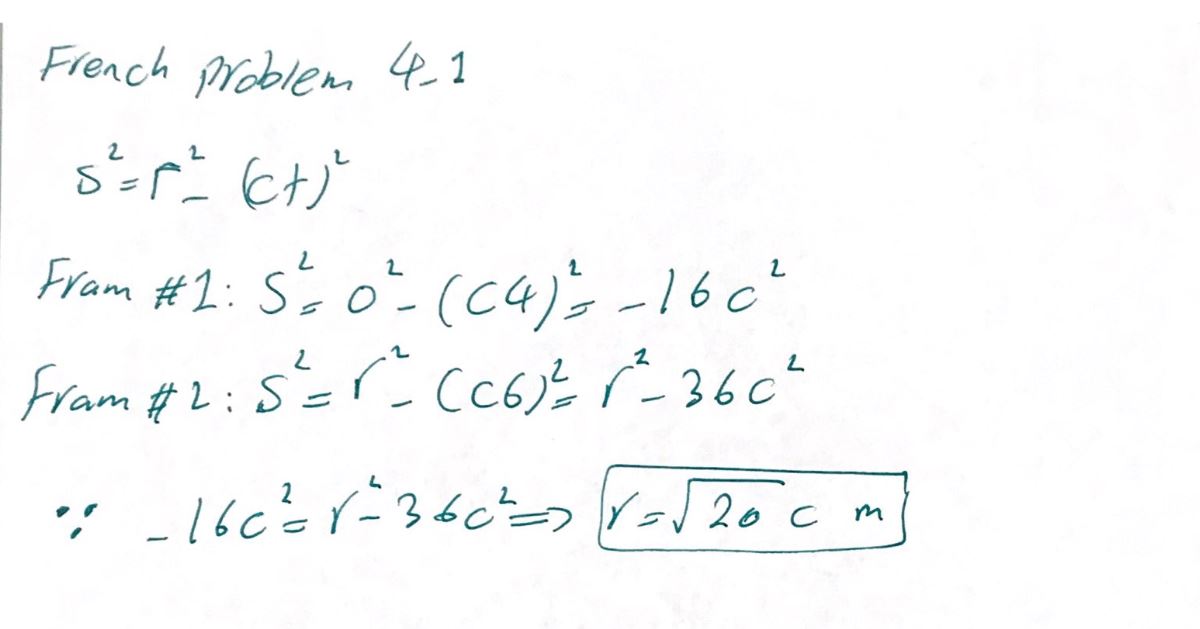 French problem 4-1
s² = r² - (ct)²
Fram #1: S² = 0² - (C4)² = -16c²
Fram #2: S² = r² - (C6)² = r² - 36c²
∵ -16c² = r² - 36c² ⇒ r = √20 c m